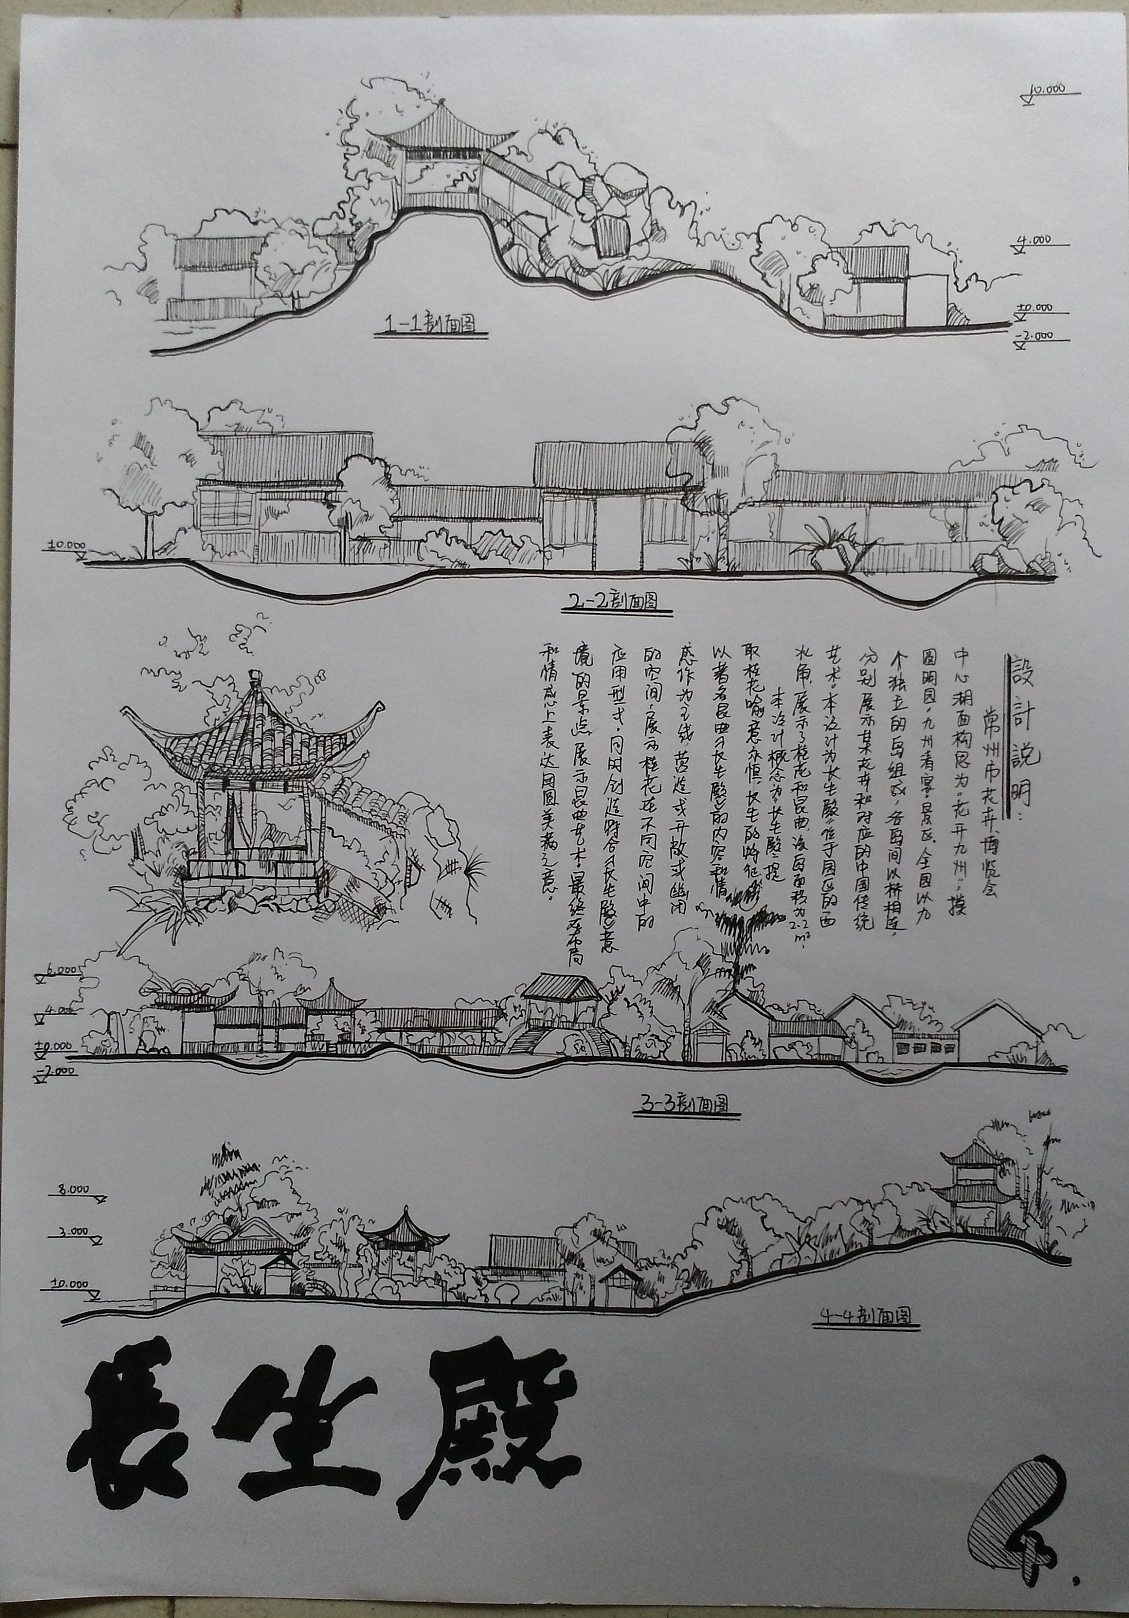 10.000
4.000
±0.000
-2.000
1-1剖面图
±0.000
2-2剖面图
設計説明:
常州市花卉博览会
中心湖面构思为“花开九州”,摸
圆明园“九州清宴”景区,全园以九
个独立的岛组成,各岛间以桥相连,
分别展示某花卉和对应的中国传统
艺术。本设计为长生殿,位于园区的西
北角,展示了桂花和昆曲,该岛面积为2.2m²
本设计概念为“长生殿”,提
取桂花喻意永恒、长生的特征,
以著名昆曲《长生殿》的内容和情
感作为主线,营造或开敞或幽闭
的空间,展示桂花在不同空间中的
应用型式。同时创造符合《长生殿》意
境的景点,展示昆曲艺术。最终在布局
和情感上表达团圆美满之意。
6.000
4.000
±0.000
-2.000
3-3剖面图
8.000
3.000
±0.000
4-4剖面图
長生殿
4.